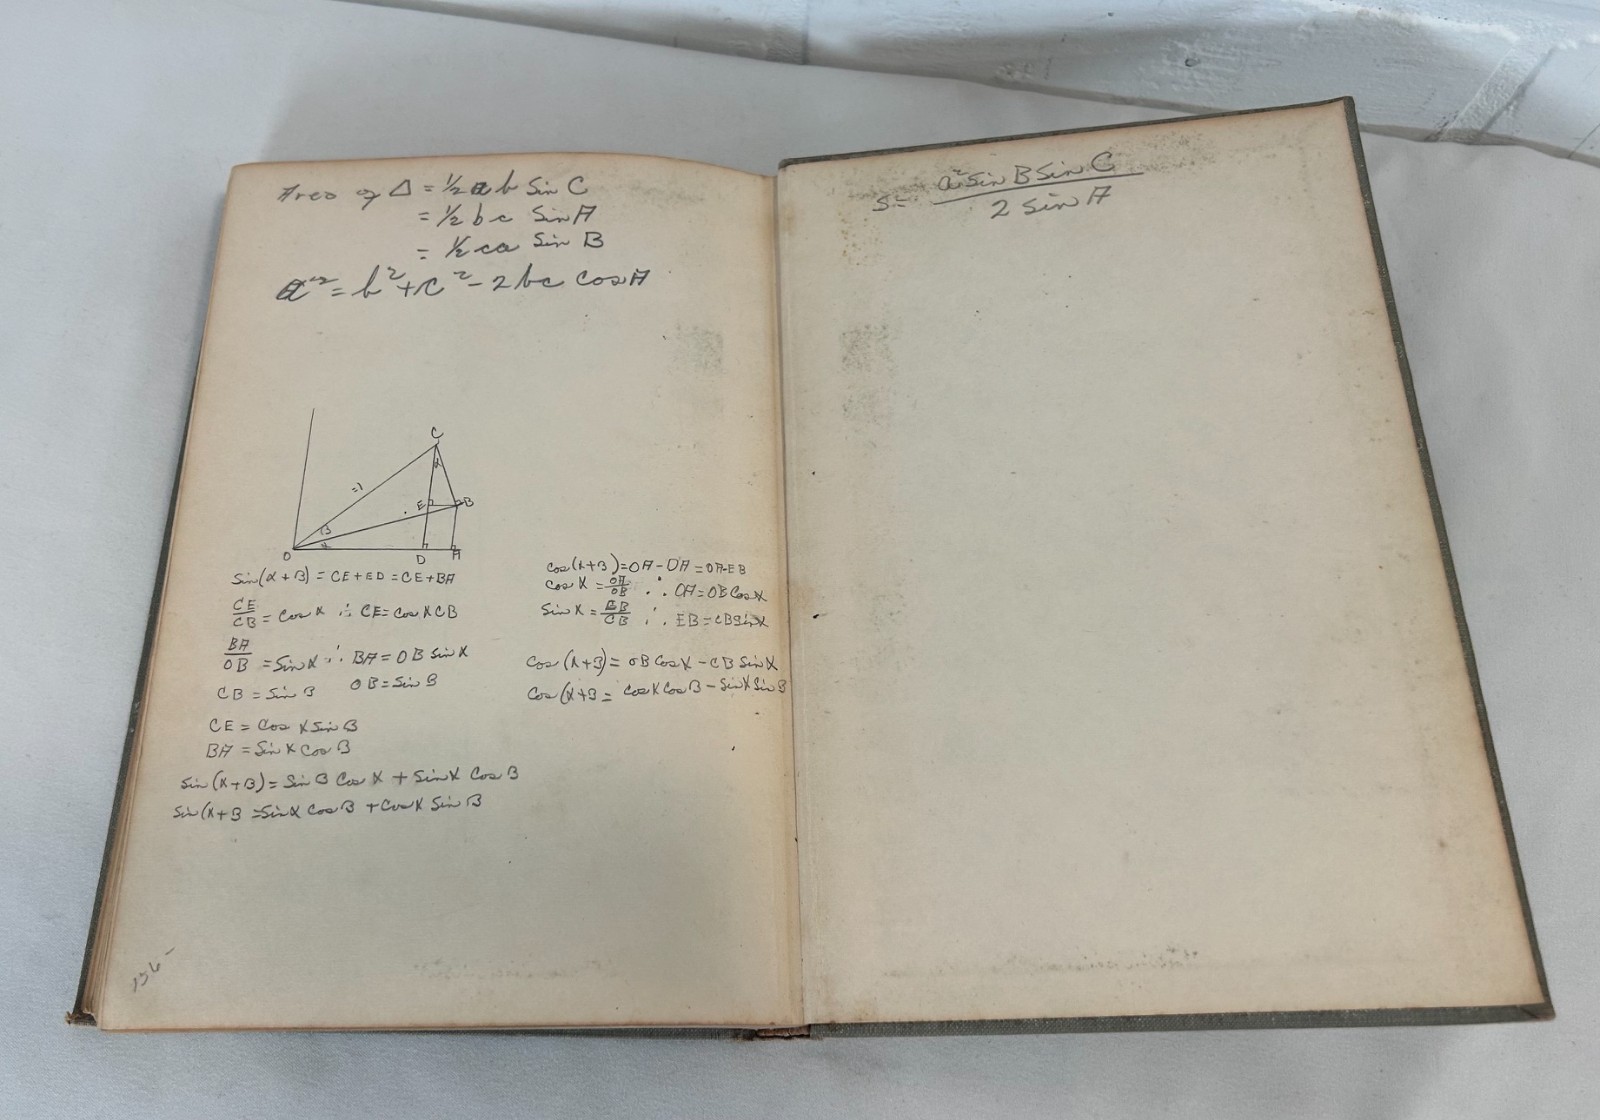 Area of △ = ½ a b Sin C
= ½ b c Sin A
= ½ c a Sin B
a² = b² + c² - 2 b c cos A
C
α
=1
E
B
β
α
O
D
A
Sin(α + β) = CE + ED = CE + BA
CE/CB = Cos α ∴ CE = Cos α CB
BA/OB = Sin α ∴ BA = OB Sin α
CB = Sin β OB = Sin β
CE = Cos α Sin β
BA = Sin α Cos β
Sin (α + β) = Sin β Cos α + Sin α Cos β
Sin (α + β = Sin α Cos β + Cos α Sin β
Cos (α + β) = OA - DA = OA - EB
Cos α = OA/OB ∴ OA = OB Cos α
Sin α = EB/CB ∴ EB = CB Sin α
Cos (α + β) = OB Cos α - CB Sin α
Cos (α + β = Cos α Cos β - Sin α Sin β
S = a² Sin B Sin C / 2 Sin A